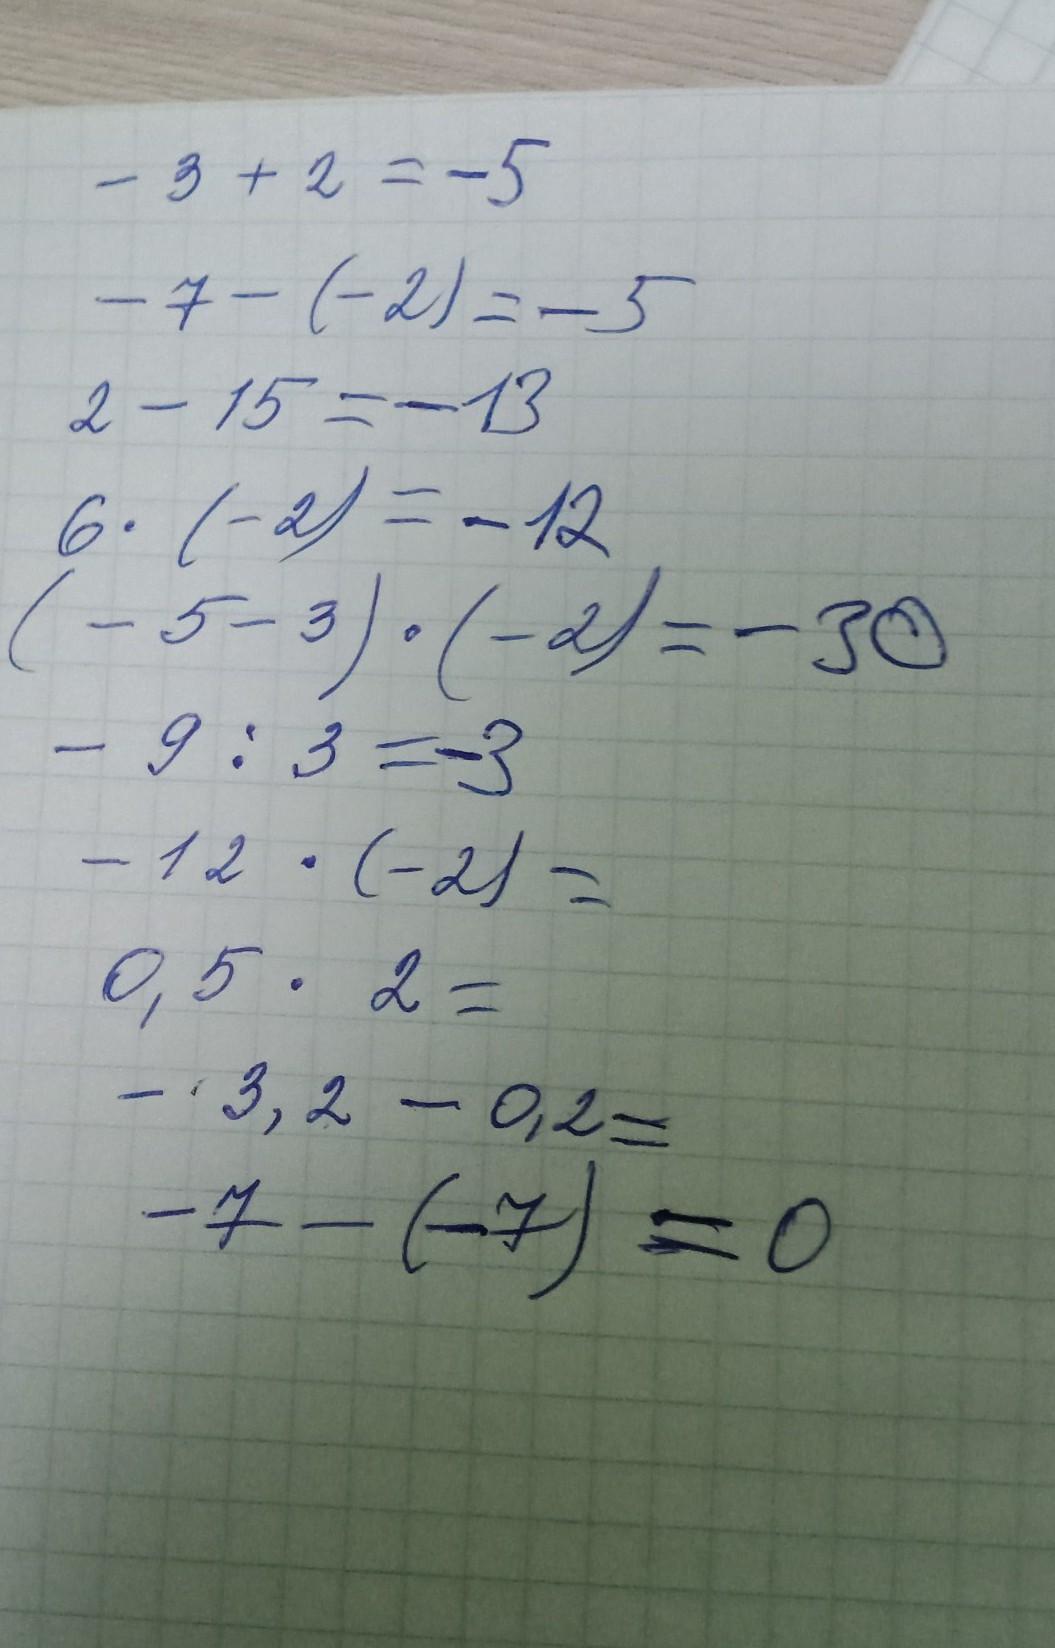 - 3 + 2 = -5
- 7 - (-2) = -5
2 - 15 = -13
6 · (-2) = -12
(-5-3) · (-2) = -30
- 9 : 3 = -3
- 12 · (-2) =
0,5 · 2 =
- 3,2 - 0,2 =
-7 - (-7) = 0